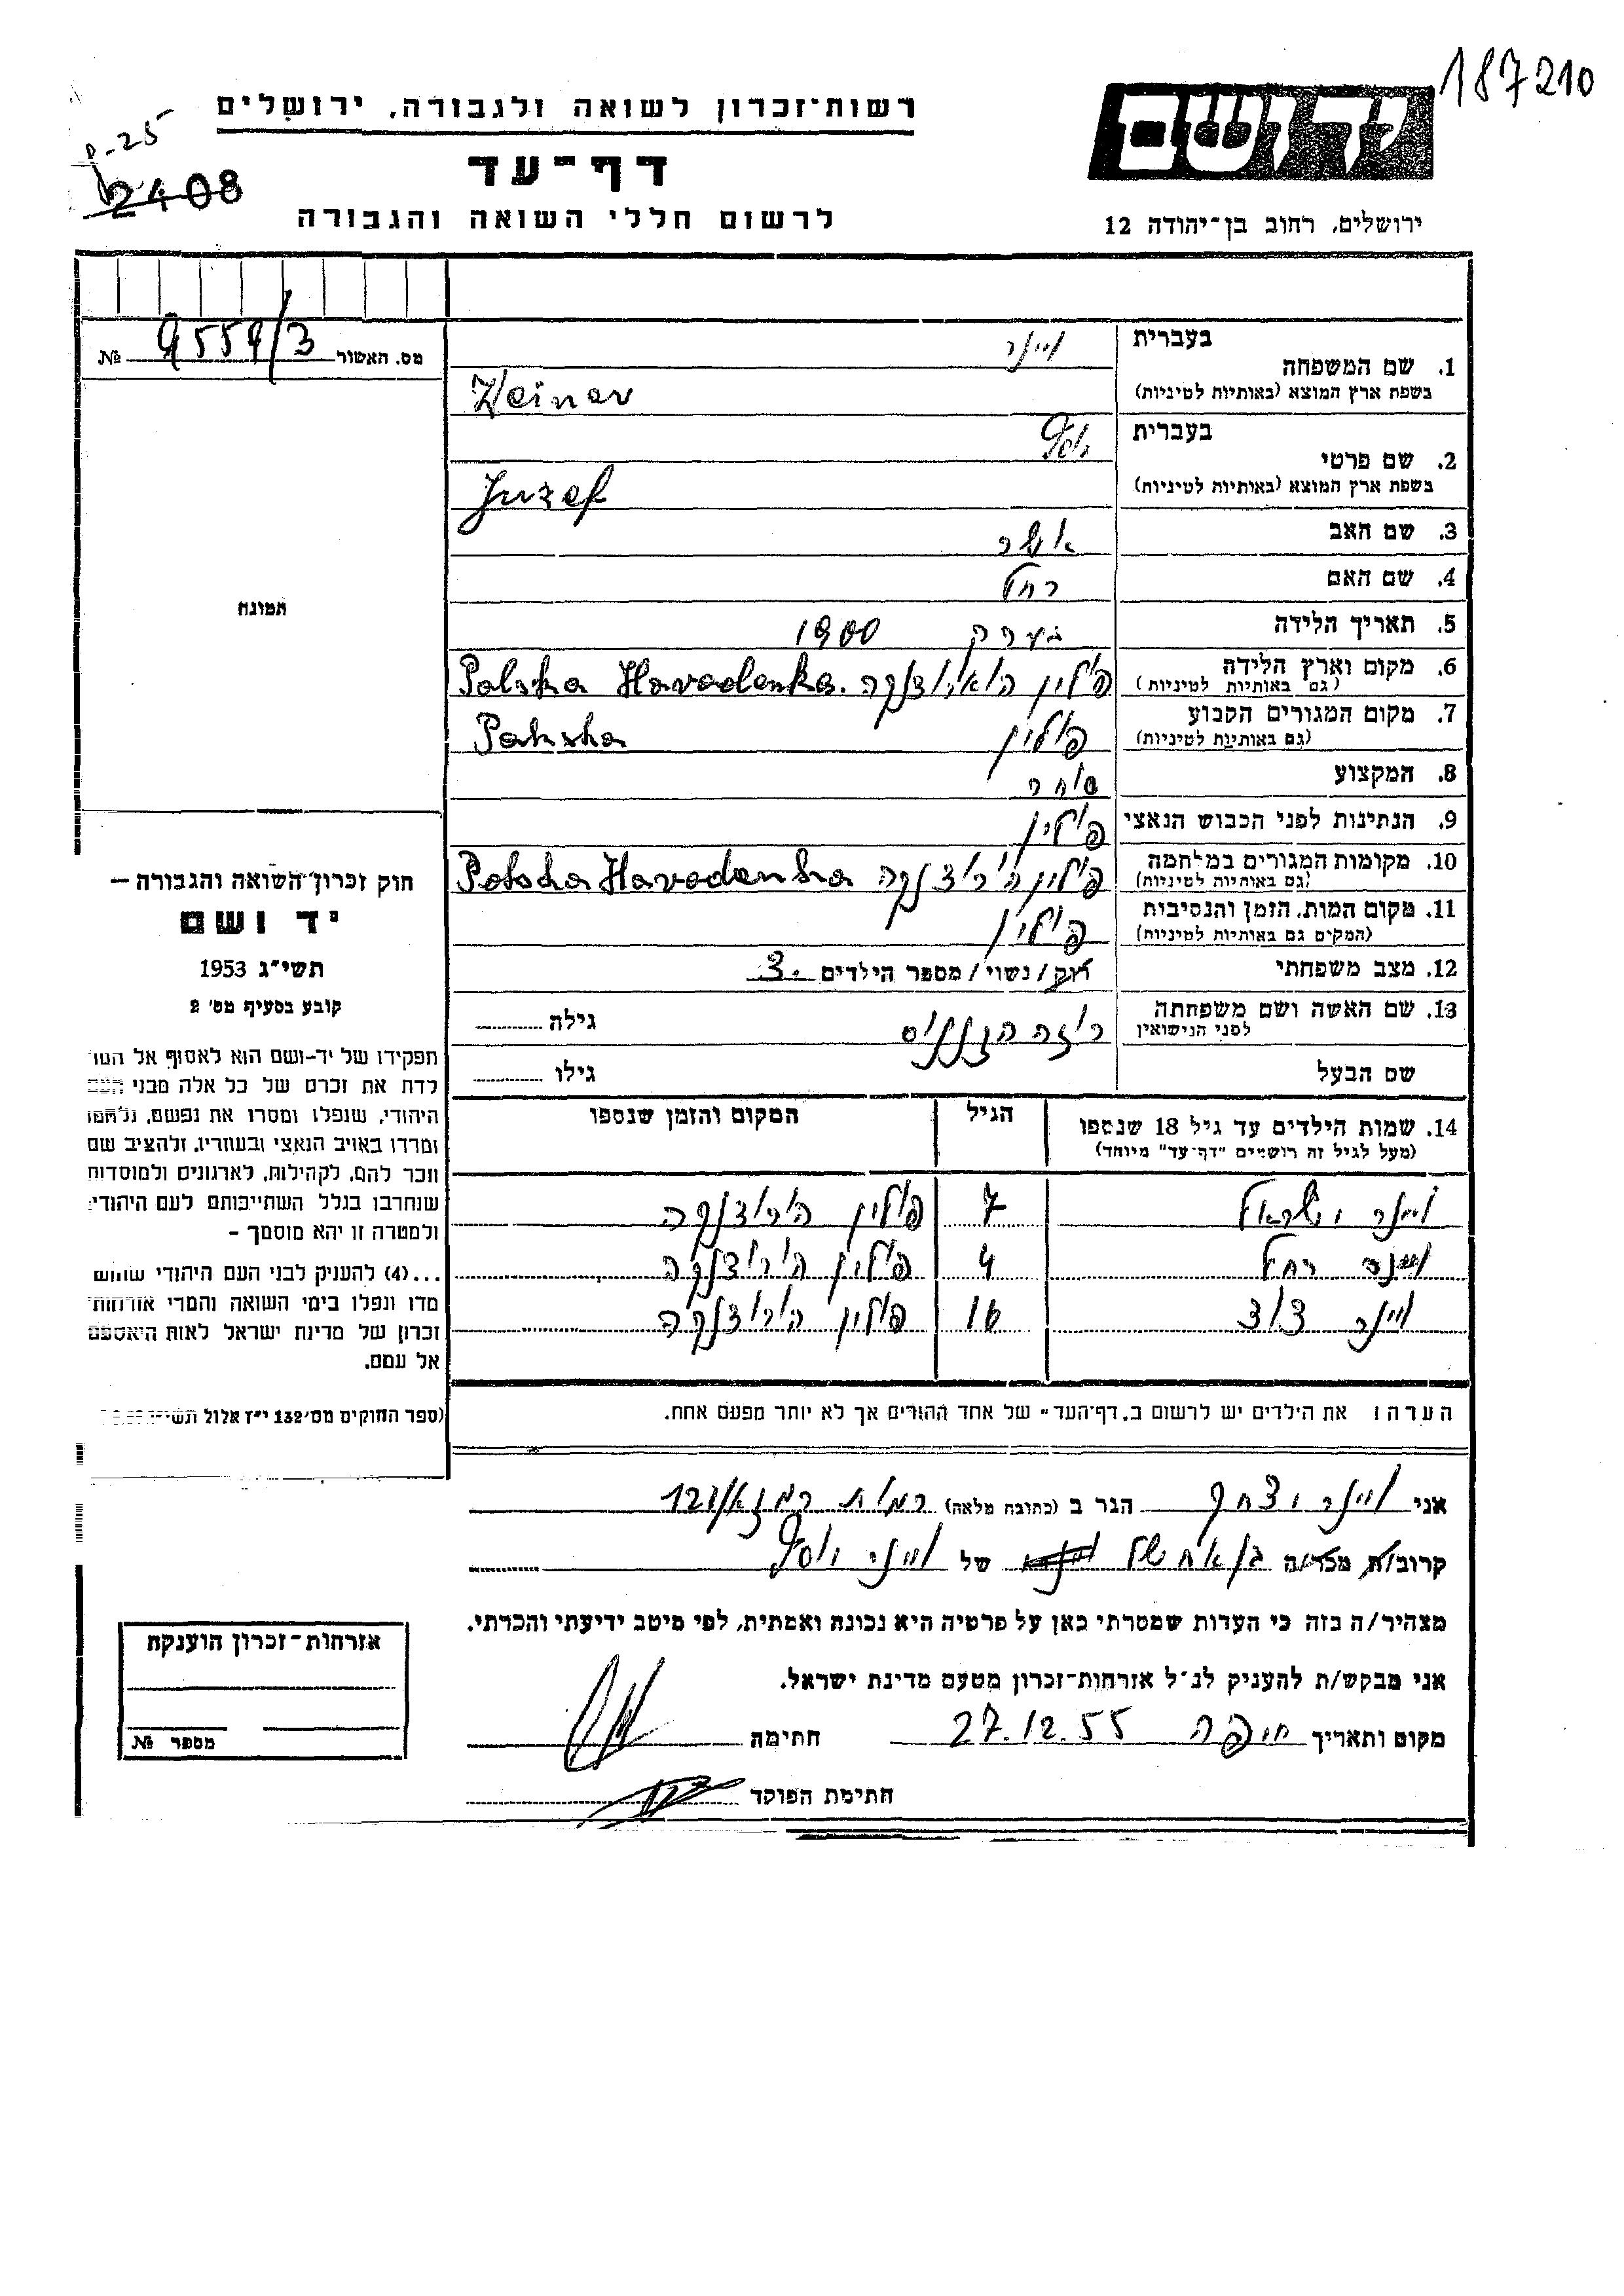 187210
רשות־זכרון לשואה ולגבורה, ירושלים
יד ושם
25
2408
דף־עד
לרשום חללי השואה והגבורה
ירושלים, רחוב בן־יהודה 12
מס. האשור 9559/3 №
בעברית
1. שם המשפחה
ויינר
בשפת ארץ המוצא (באותיות לטיניות)
Weiner
בעברית
2. שם פרטי
יוסף
בשפת ארץ המוצא (באותיות לטיניות)
Juzef
3. שם האב אשר
4. שם האם רחל
5. תאריך הלידה בערך 1900
6. מקום וארץ הלידה
(גם באותיות לטיניות) פולין Polska Havodenka.
7. מקום המגורים הקבוע
(גם באותיות לטיניות) פולין Polska
8. המקצוע סוחר
9. הנתינות לפני הכבוש הנאצי פולין
10. מקומות המגורים במלחמה
(גם באותיות לטיניות) פולין הורודנקה Polska Havodenka
11. מקום המות, הזמן והנסיבות
(המקים גם באותיות לטיניות) פולין
12. מצב משפחתי רוק/נשוי/מספר הילדים 3.
13. שם האשה ושם משפחתה
לפני הנישואין רוזה גילה
שם הבעל גילו
14. שמות הילדים עד גיל 18 שנספו
(מעל לגיל זה רושמים "דף־עד" מיוחד)
הגיל
המקום והזמן שנספו
ויינר ישראל 7 פולין הורודנקה
ויינר רחל 4 פולין הורודנקה
ויינר 16 פולין הורודנקה
הערה: את הילדים יש לרשום ב„דף־העד" של אחד ההורים אך לא יותר מפעם אחת.
אני ויינר יצחק הגר ב (כתובה מלאה) רמת רמז 127
קרוב/ת מכר/ה בן אח של של ויינר יוסף
מצהיר/ה בזה כי העדות שמסרתי כאן על פרטיה היא נכונה ואמתית, לפי מיטב ידיעתי והכרתי.
אני מבקש/ת להעניק לנ"ל אזרחות־זכרון מטעם מדינת ישראל.
מקום ותאריך חיפה 27.12.55 חתימה
חתימת הפוקד
תמונה
חוק זכרון־השואה והגבורה —
יד ושם
תשי״ג 1953
קובע בסעיף מס' 2
תפקידו של יד־ושם הוא לאסוף אל המו־
לדת את זכרם של כל אלה מבני העם
היהודי, שנפלו ומסרו את נפשם, נלחמו
ומרדו באויב הנאצי ובעוזריו, ולהציב שם
וזכר להם, לקהילות, לארגונים ולמוסדות
שנחרבו בגלל השתייכותם לעם היהודי
ולמטרה זו יהא מוסמך —
...(4) להעניק לבני העם היהודי שהוש־
מדו ונפלו בימי השואה והמרי אזרחות־
זכרון של מדינת ישראל לאות היאספם
אל עמם.
(ספר החוקים מס' 132 י״ז אלול
אזרחות־זכרון הוענקה
מספר №